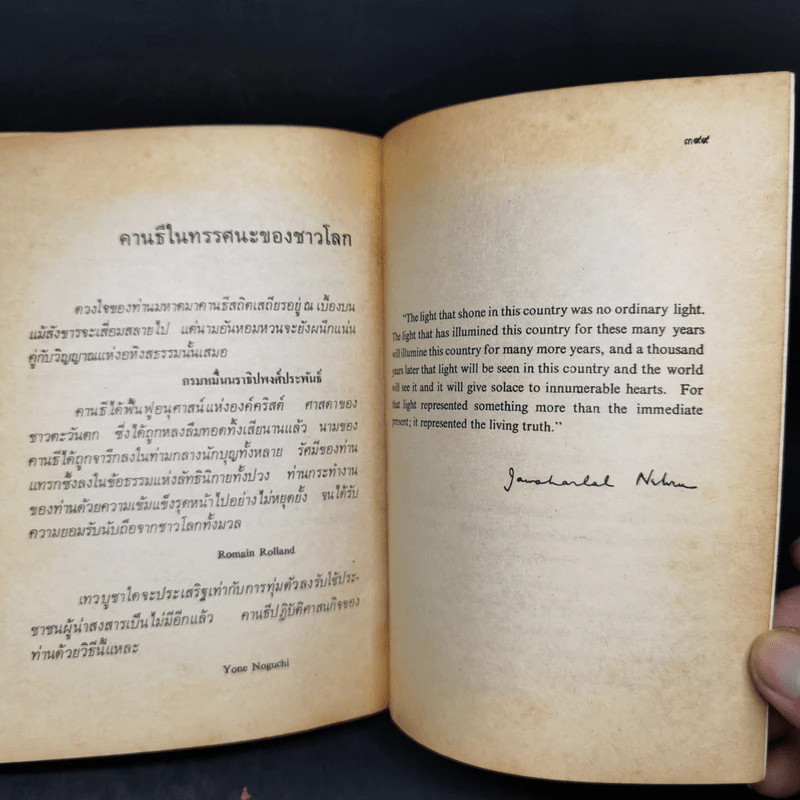 คานธีในทรรศนะของชาวโลก
ดวงใจของท่านมหาตมาคานธีสถิตเสถียรอยู่ ณ เบื้องบน
แม้สังขารจะเสื่อมสลายไป แต่นามอันหอมหวนจะยังผนึกแน่น
คู่กับวิญญาณแห่งอหิงสธรรมนั้นเสมอ
กรมหมื่นนราธิปพงศ์ประพันธ์
คานธีได้ฟื้นฟูอนุศาสน์แห่งองค์คริสต์ ศาสดาของ
ชาวตะวันตก ซึ่งได้ถูกหลงลืมทอดทิ้งเสียนานแล้ว นามของ
คานธีได้ถูกจารึกลงในท่ามกลางนักบุญทั้งหลาย รัศมีของท่าน
แทรกซึ้งลงในข้อธรรมแห่งลัทธินิกายทั้งปวง ท่านกระทำงาน
ของท่านด้วยความเข้มแข็งรุดหน้าไปอย่างไม่หยุดยั้ง จนได้รับ
ความยอมรับนับถือจากชาวโลกทั้งมวล
Romain Rolland
เทวบูชาใดจะประเสริฐเท่ากับการทุ่มตัวลงรับใช้ประ-
ชาชนผู้น่าสงสารเป็นไม่มีอีกแล้ว คานธีปฏิบัติศาสนกิจของ
ท่านด้วยวิธีนี้แหละ
Yone Noguchi
"The light that shone in this country was no ordinary light.
The light that has illumined this country for these many years
will illumine this country for many more years, and a thousand
years later that light will be seen in this country and the world
will see it and it will give solace to innumerable hearts. For
that light represented something more than the immediate
present; it represented the living truth."
Jawaharlal Nehru